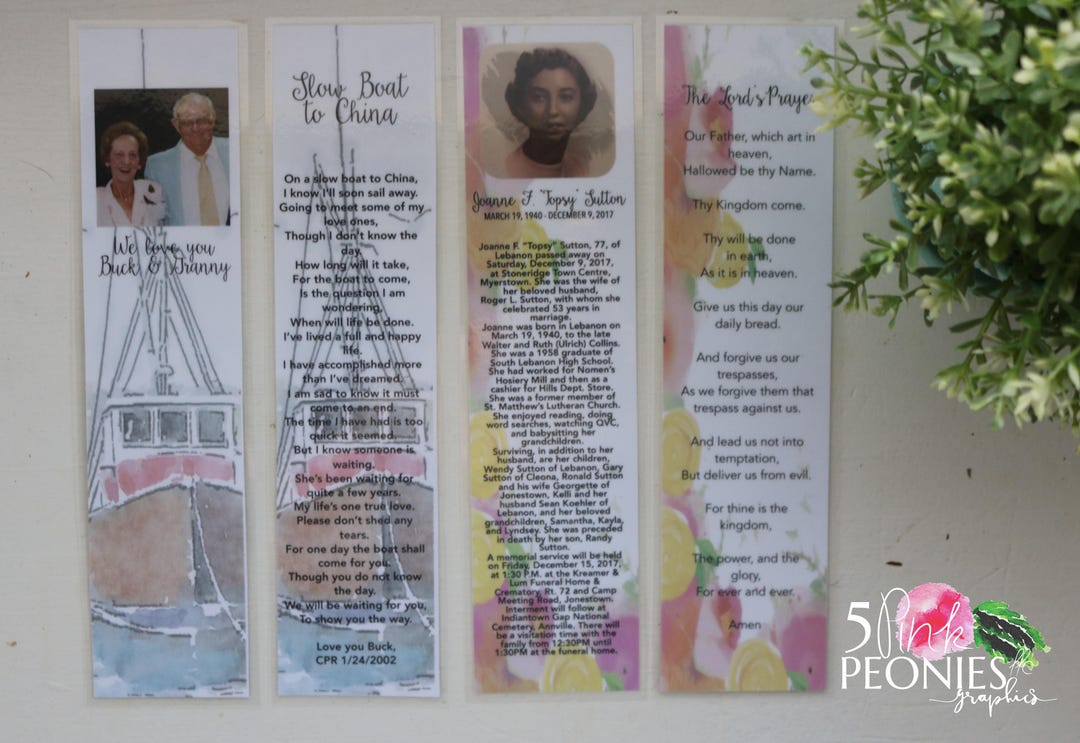 We love you
Buck & Granny
Slow Boat
to China
On a slow boat to China,
I know I'll soon sail away.
Going to meet some of my
love ones,
Though I don't know the
day.
How long will it take,
For the boat to come,
Is the question I am
wondering,
When will life be done.
I've lived a full and happy
life.
I have accomplished more
than I've dreamed.
I am sad to know it must
come to an end.
The time I have had is too
quick it seemed.
But I know someone is
waiting.
She's been waiting for
quite a few years.
My life's one true love.
Please don't shed any
tears.
For one day the boat shall
come for you.
Though you do not know
the day.
We will be waiting for you,
To show you the way.
Love you Buck,
CPR 1/24/2002
Joanne F. "Topsy" Sutton
MARCH 19, 1940 - DECEMBER 9, 2017
Joanne F. "Topsy" Sutton, 77, of
Lebanon passed away on
Saturday, December 9, 2017,
at Stoneridge Town Centre,
Myerstown. She was the wife of
her beloved husband,
Roger L. Sutton, with whom she
celebrated 53 years in
marriage.
Joanne was born in Lebanon on
March 19, 1940, to the late
Walter and Ruth (Ulrich) Collins.
She was a 1958 graduate of
South Lebanon High School.
She had worked for Nomen's
Hosiery Mill and then as a
cashier for Hills Dept. Store.
She was a former member of
St. Matthew's Lutheran Church.
She enjoyed reading, doing
word searches, watching QVC,
and babysitting her
grandchildren.
Surviving, in addition to her
husband, are her children,
Wendy Sutton of Lebanon, Gary
Sutton of Cleona, Ronald Sutton
and his wife Georgette of
Jonestown, Kelli and her
husband Sean Koehler of
Lebanon, and her beloved
grandchildren, Samantha, Kayla,
and Lyndsey. She was preceded
in death by her son, Randy
Sutton.
A memorial service will be held
on Friday, December 15, 2017,
at 1:30 P.M. at the Kreamer &
Lum Funeral Home &
Crematory, Rt. 72 and Camp
Meeting Road, Jonestown.
Interment will follow at
Indiantown Gap National
Cemetery, Annville. There will
be a visitation time with the
family from 12:30PM until
1:30PM at the funeral home.
The Lord's Prayer
Our Father, which art in
heaven,
Hallowed be thy Name.
Thy Kingdom come.
Thy will be done
in earth,
As it is in heaven.
Give us this day our
daily bread.
And forgive us our
trespasses,
As we forgive them that
trespass against us.
And lead us not into
temptation,
But deliver us from evil.
For thine is the
kingdom,
The power, and the
glory,
For ever and ever.
Amen
5 Pink
PEONIES llc
graphics